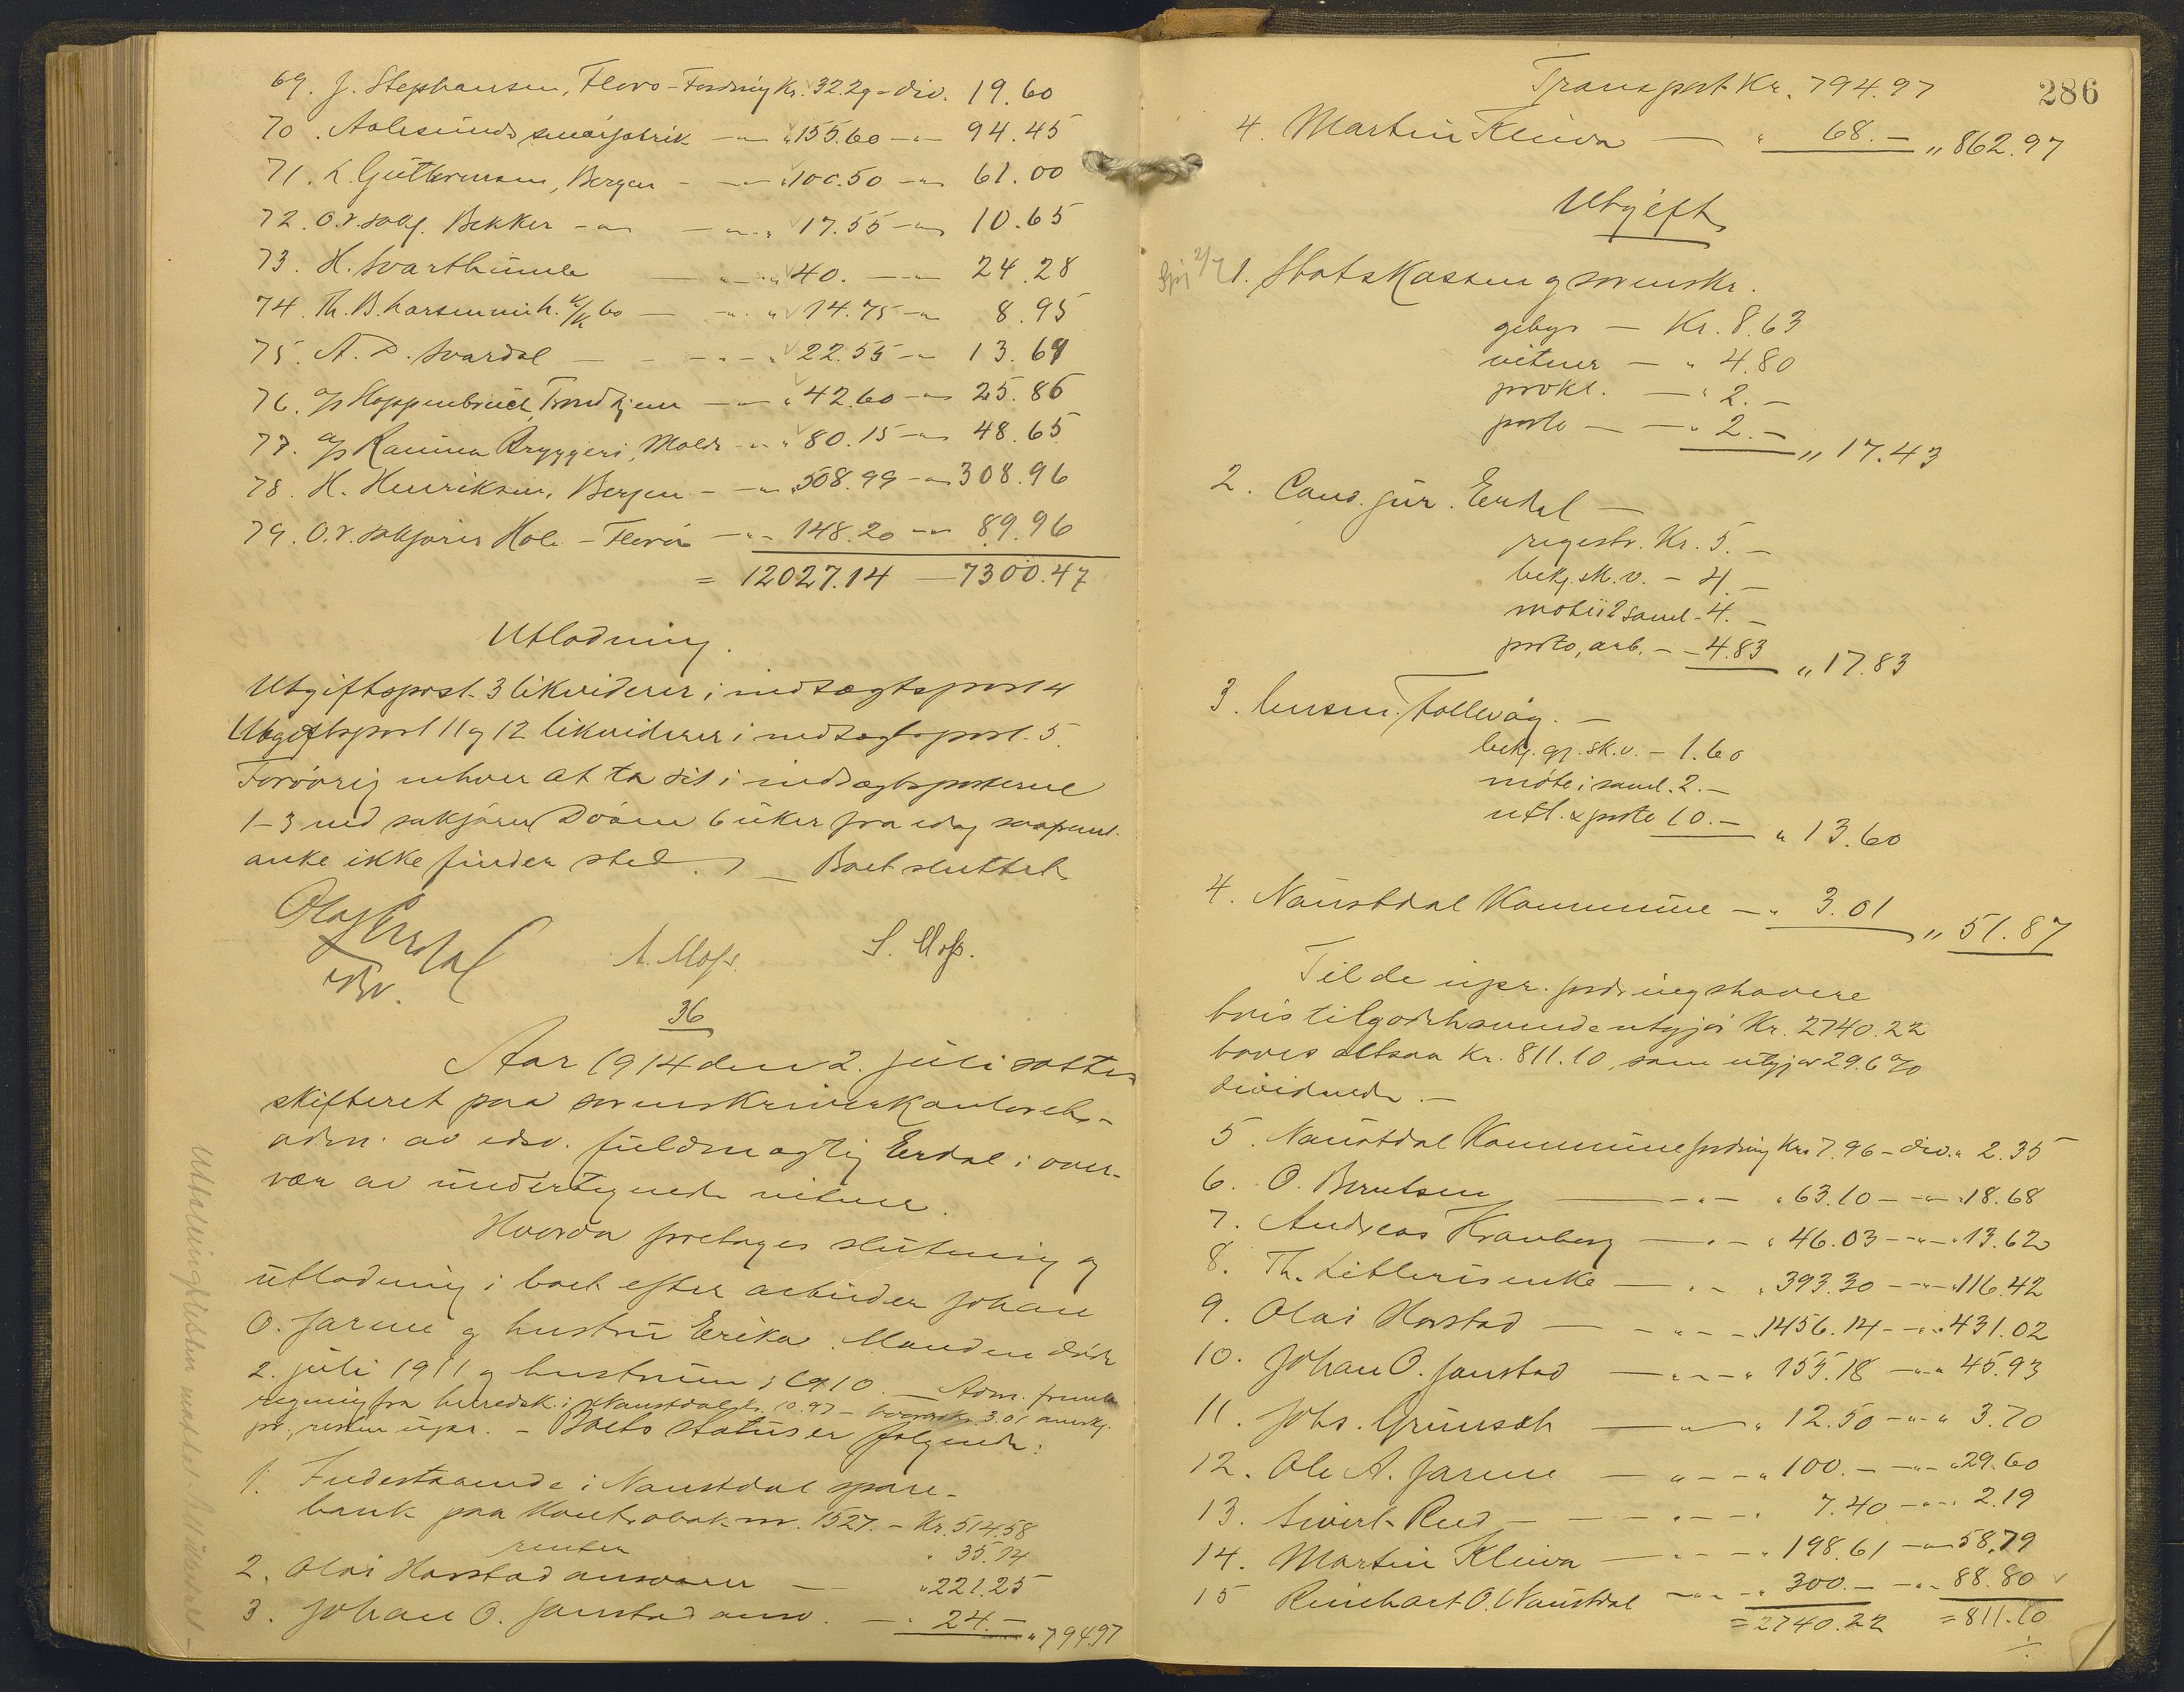 69. J. Stephansen, Florø - Fordring Kr. 32.29 - div. 19.60
70. Aalesunds smørfabrik — " — " 155.60 — " — 94.45
71. L. Guttormsen, Bergen - — " 100.50 — " — 61.00
72. O.r.sakf. Bekker - " - — " — " 17.55 — " — 10.65
73. H. Svarthumle — " — " 40. — " — 24.28
74. Th. B. Larsen — " — " 14.75 — " — 8.95
75. A. D. Svardal — " — " 22.55 — " — 13.69
76. A/S Hoppenbruch, Trondhjem — " — " 42.60 — " — 25.86
77. A/S Bryggeri, Molde — " — " 80.15 — " — 48.65
78. H. Henriksen, Bergen - — " — " 508.99 — " — 308.96
79. O.r. sakfører Hole - Florø — " — 148.20 — " — 89.96
= 12027.14 — 7300.47
Utlodning.
Utgiftspost 3 likviderer i indtægtspost 4
Utgiftspost 11 og 12 likviderer i indtægtspost. 5.
Forøvrig enhver at ta sit i indtægtsposterne
1-3 ved sakfører 6 uker fra idag saafremt
anke ikke finder sted. — Boet sluttet
Olaf Erdal
edsv.
A. Moss.
S. Moss.
36
Aar 1914 den 2. juli sattes
skifteret paa sorenskriverkontoret -
adm. av edsv. fuldmægtig Erdal i over-
vær av undertegnede vitner.
Hvorda foretages slutning og
utlodning i boet efter arbeider Johan
O. Farsue og hustru Erika. Manden døde
2. juli 1911 og hustruen i 1910. — Adm. fremla
regning fra herredsk. i Naustdal kr. 10.97 - hvorav kr. 3.01 anerkj.
pr., resten upr. - Boets status er følgende:
1. Indestaaende i Naustdal spare-
bank paa Kontrabok nr. 1527. - Kr. 514.58
renter " 35.14
2. Olai Horstad ansvarer — " 221.25
3. Johan O. Janstad ansv. — " 24. — " 794.97
Utlodningslisten
286
Transport Kr. 794.97
4. Martin Kleiva — " 68. — " 862.97
Utgift
1. Statskassen og sorenskr.
gebyr — Kr. 8.63
vitner — " 4.80
prokl. — " 2. —
porto — — " 2. — " 17.43
2. Cand. jur. Erdal —
registr. Kr. 5. —
bekj. sk. v. — 4. —
møte i 2 saml. - 4. —
porto, arb. — - 4.83 " 17.83
3. Lensm. Tollevåg. —
bekj. gj. sk. v. — 1.60
møte i saml. 2. —
utl. & porto 10. — " 13.60
4. Naustdal Kommune — " 3.01 " 51.87
Til de upr. fordringshavere
hvis tilgodehavende utgjør Kr. 2740.22
haves altsaa kr. 811.10, som utgjør 29.6 %
dividende. —
5. Naustdal Kommune fordring Kr. 7.96 - div. " 2.35
6. O. Berntsen — " — " 63.10 — " — " 18.68
7. Andreas Kranberg — " — " 46.03 — " — " 13.62
8. Th. Litleris enke — " — " 393.30 — " — " 116.42
9. Olai Horstad — - " — " 1456.14 — " — " 431.02
10. Johan O. Janstad — " — " 155.18 — " — " 45.93
11. Johs. Grimset — " — " 12.50 — " — " 3.70
12. Ole A. Farsue — " — " 100. — — " — " 29.60
13. Sivert Reed — — " — " 7.40 — " — 2.19
14. Martin Kleiva — " — " 198.61 — " — 58.79
15 Reinhart O. Naustdal — " — " 300. — — " — 88.80
= 2740.22 = 811.10